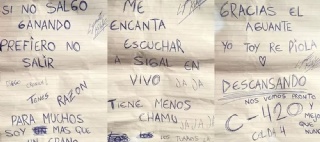 SI NO SALGO
GANANDO
PREFIERO NO
SALIR
TENES RAZON
PARA MUCHOS
SOY MAS QUE
UN GRANO
ME
ENCANTA
ESCUCHAR
A SIGAL EN
VIVO JA JA
TIENE MENOS
CHAMU JA JA JA
GRACIAS EL
AGUANTE
YO TOY RE PIOLA
DESCANSANDO
NOS VEMOS PRONTO
C-420 Y
MEJO
QUE
NUNC